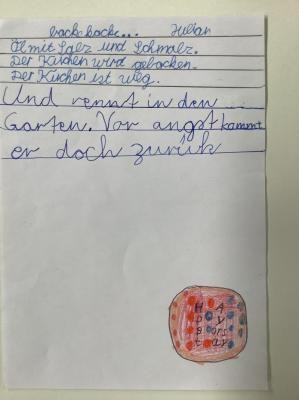 backe backe... Julian
Öl mit Salz und Schmalz.
Der Kuchen wird gebacken.
Der Kuchen ist weg.
Und rennt in den ...
Garten. Vor angst kommt
er doch zurück
H A